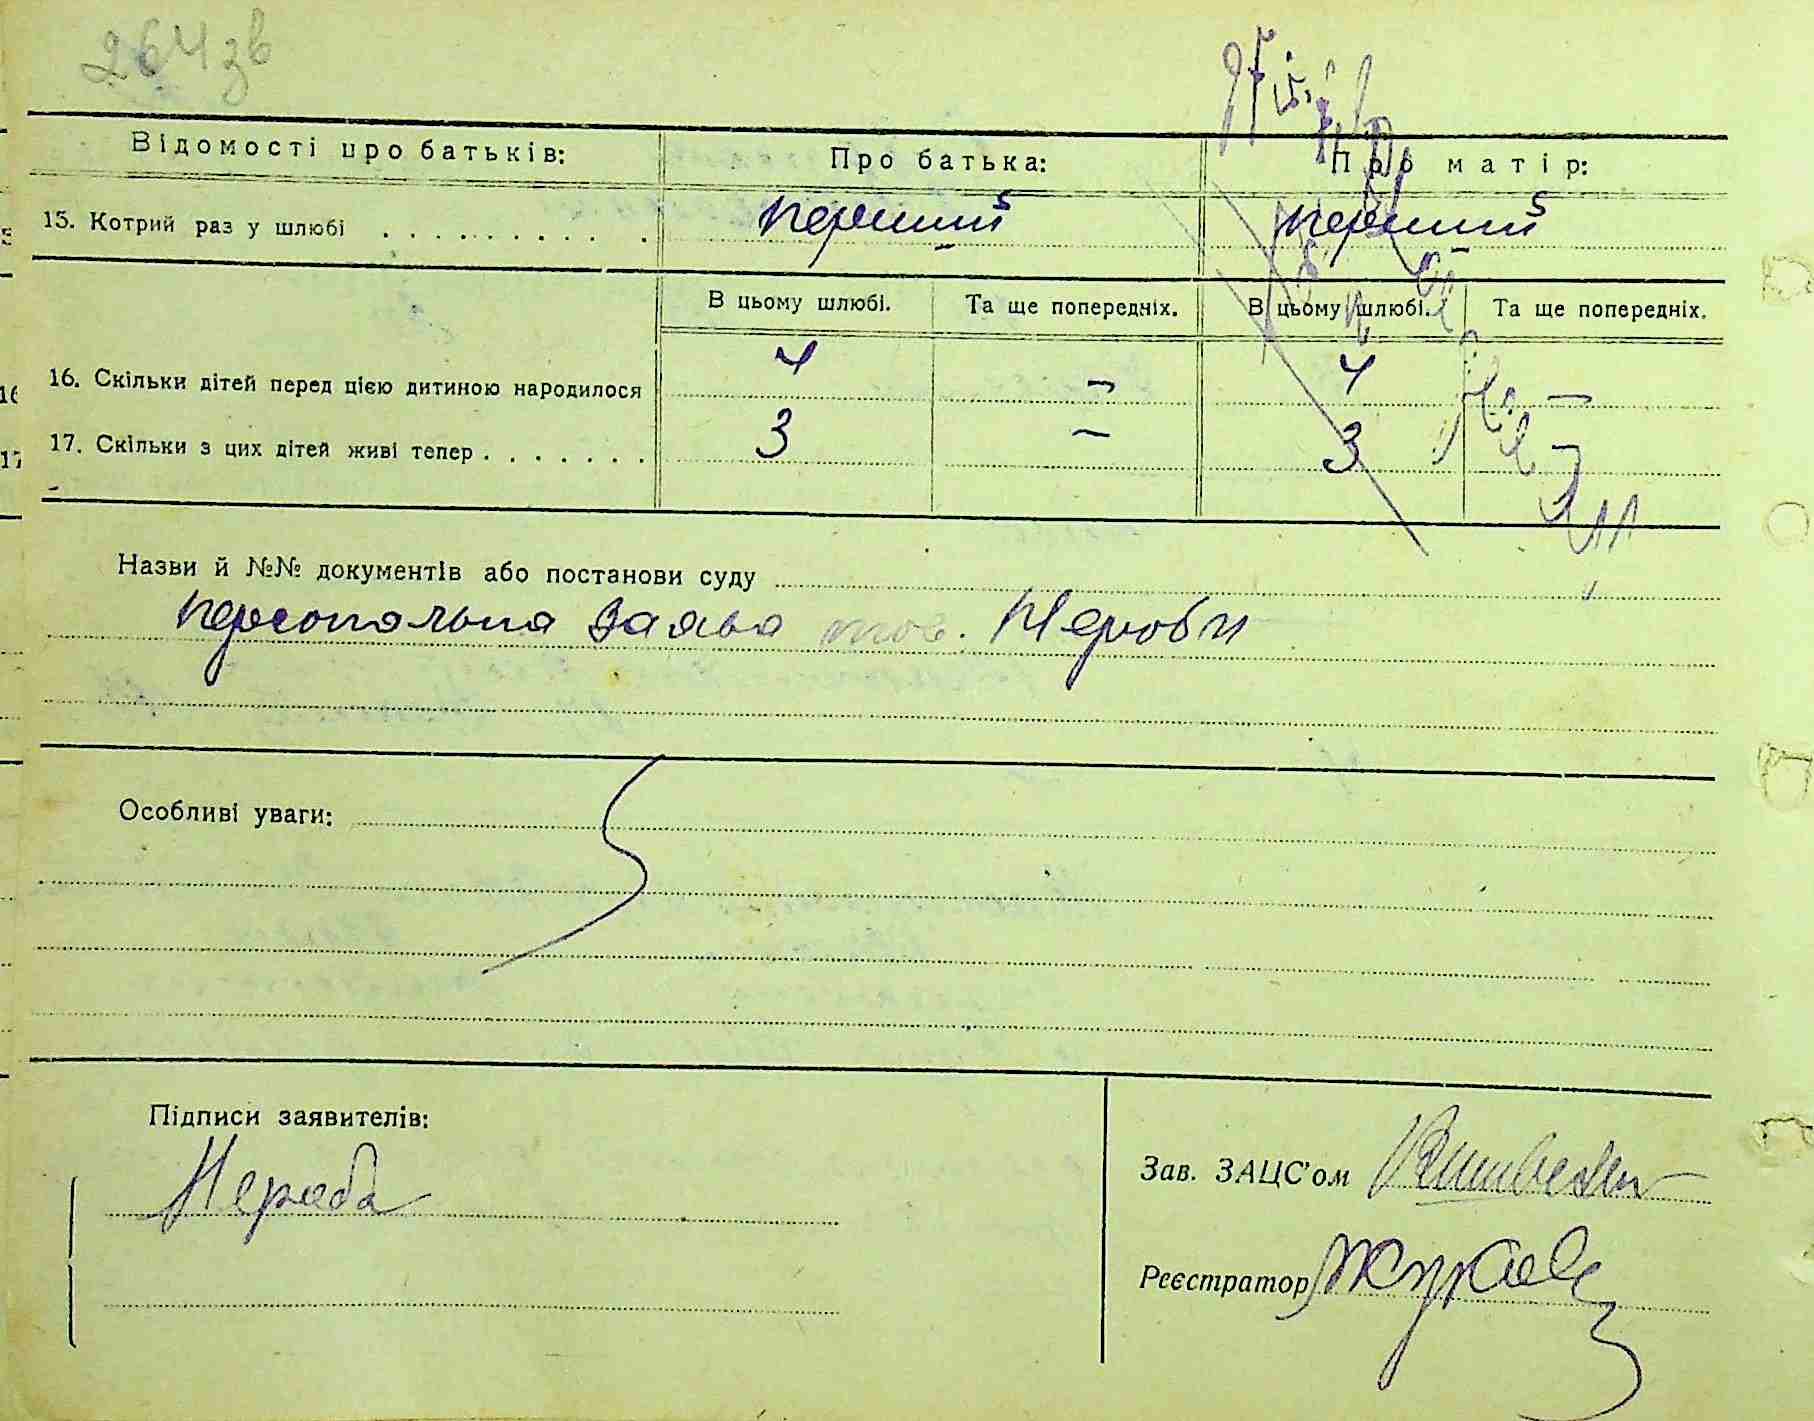 264 зв
Відомості про батьків: Про батька: Про матір:
15. Котрий раз у шлюбі . . . . . . . . . . перший перший
В цьому шлюбі. Та ще попередніх. В цьому шлюбі. Та ще попередніх.
16. Скільки дітей перед цією дитиною народилося 4 — 4 —
17. Скільки з цих дітей живі тепер . . . . . . . 3 — 3 —
Назви й №№ документів або постанови суду
персональна заява тов.
Особливі уваги:
Підписи заявителів:
Зав. ЗАЦС'ом
Реєстратор